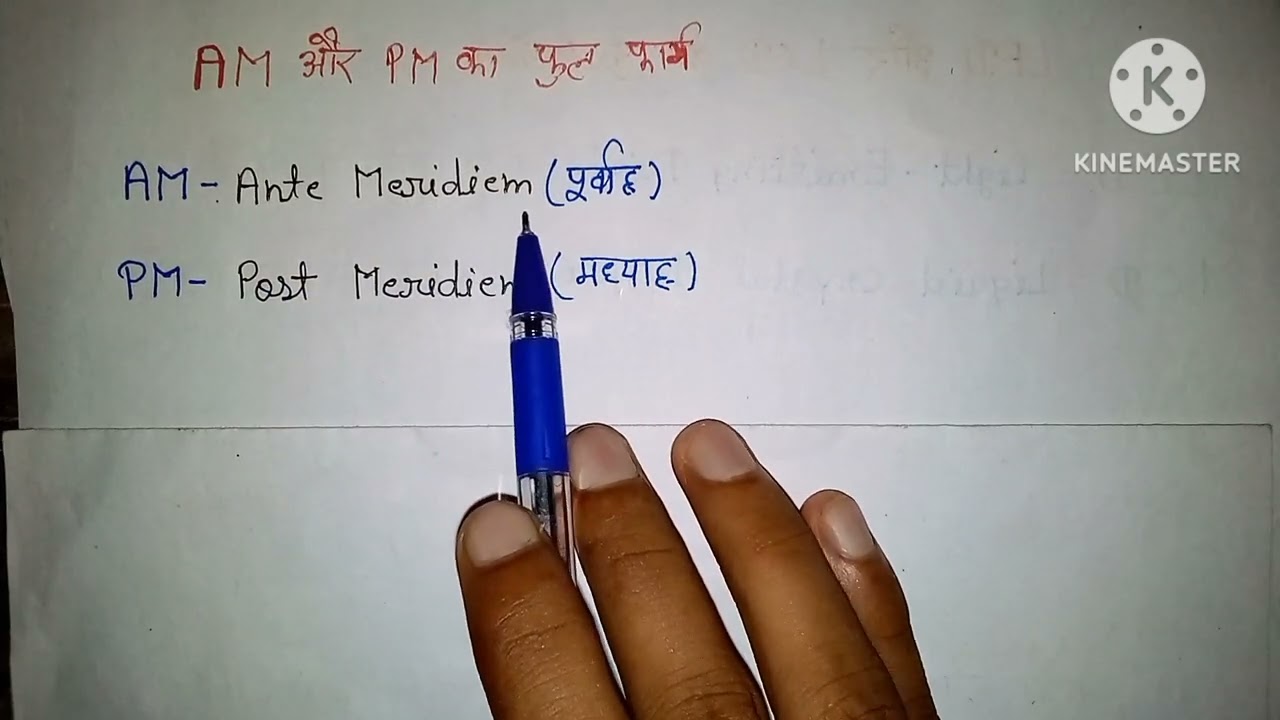 AM और PM का फुल फार्म
AM - Ante Meridiem (पूर्वाह)
PM - Post Meridiem (मध्याह)
K
KINEMASTER